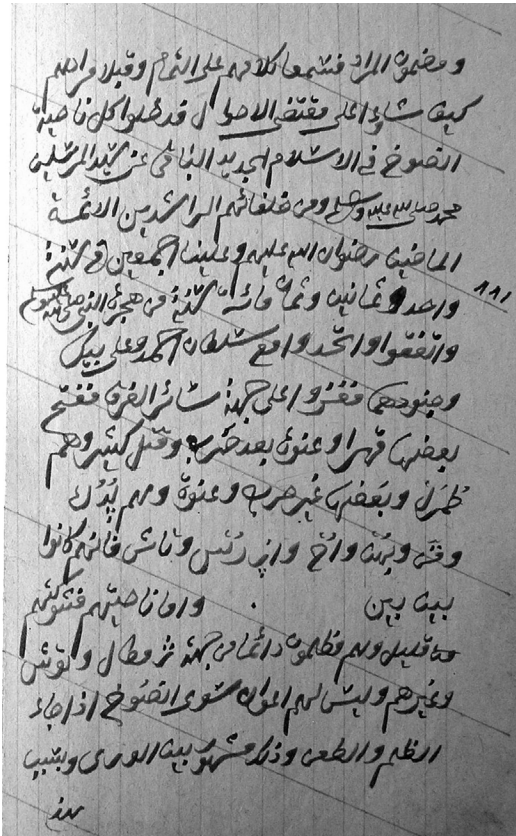 ومضمون المراد فسمعا كلامهم على التمام وقبلا مرامهم
كيف شاءوا على مقتضى الاحوال فدخلوا كل ناحية
انصوخ في الاسلام الجديد الباقي عن سيد المرسلين
محمد صلى الله عليه وسلم ومن خلفائهم الراشدين الائمة
الماضين رضوان الله عليهم وعلينا اجمعين في سنة
واحد وثمانين وثمان مائة سنة من هجرة النبي صلى الله عليه وسلم ٨٨١
واتفقوا واتحدوا مع سلطان احمد وعلي بيك
وجنودهما فغزوا على جهة سائر القرى ففتح
بعضها قهرا وعنوة بعد ضرب وقتل كثير وهم
وبعضها غير حرب وعنوة وهم
فانهم كانوا
بين بين واما ناحيتهم فشوكتهم
قليل وهم مظلمون دائما من جهة
وغيرهم وليس لهم اعوان سوى انصوخ اذا جاء
الظلم والطعن وذلك مشهور بين الورى وبسبب